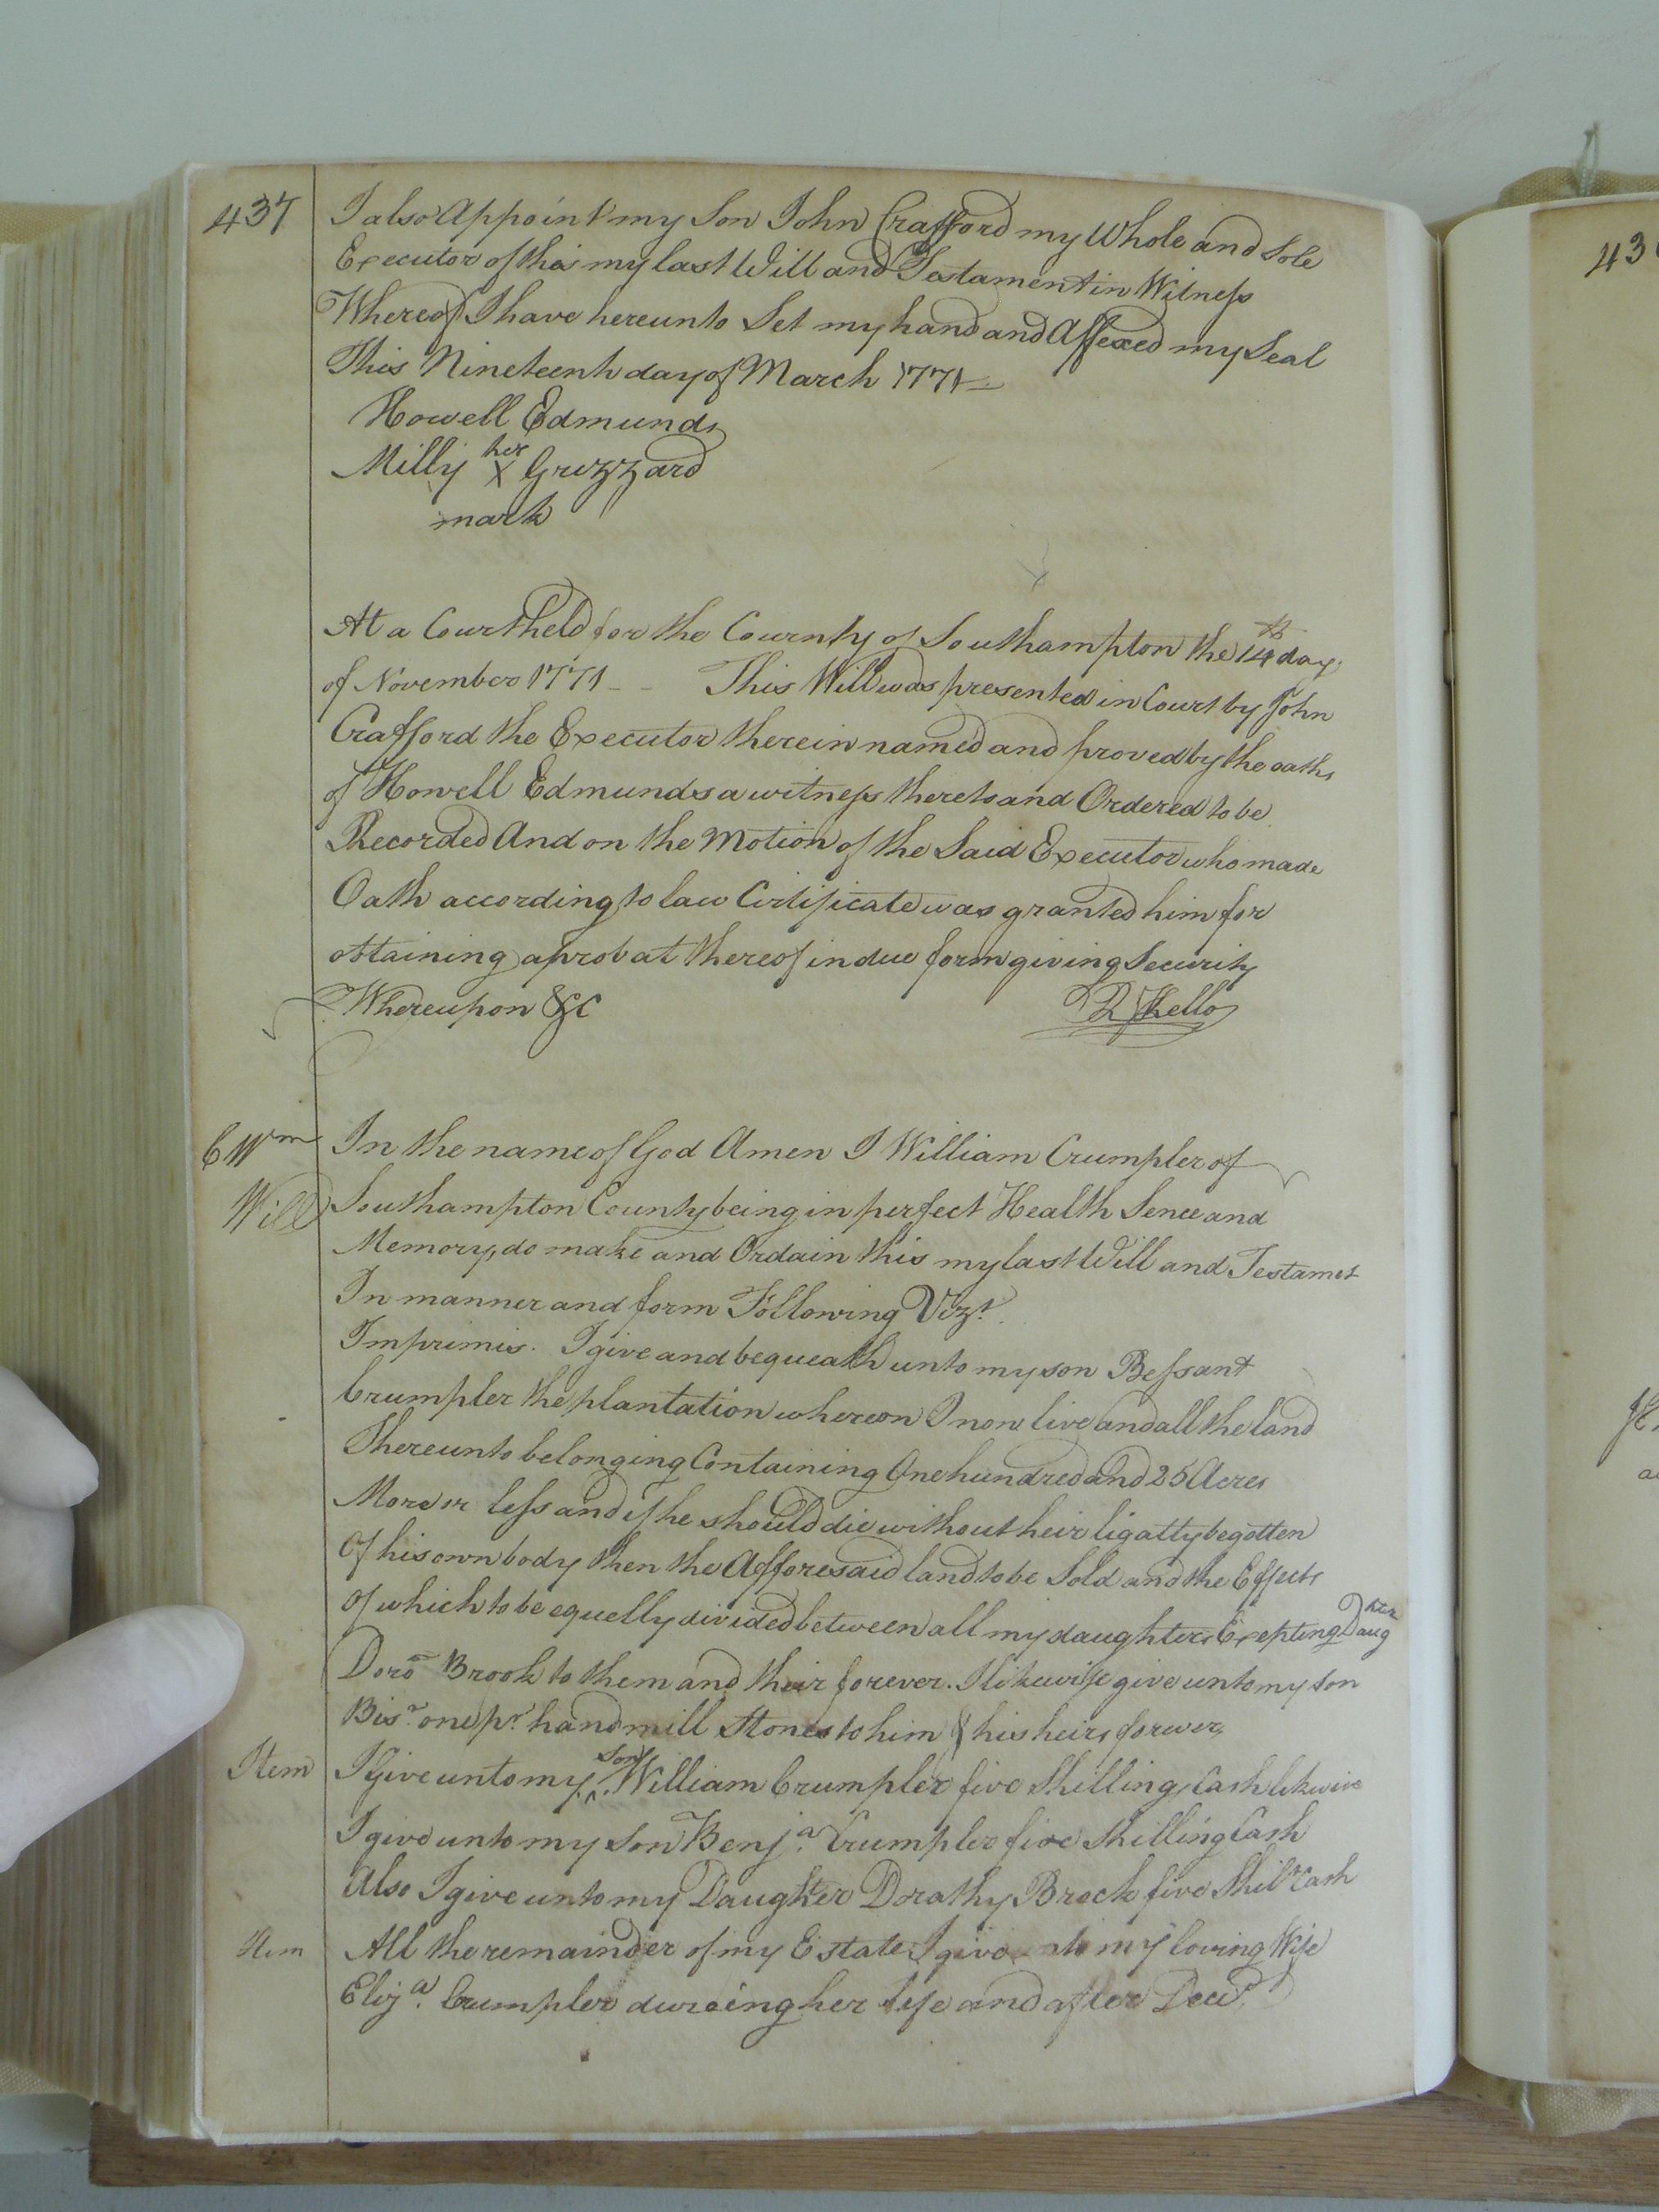 437
I also Appoint my Son John Crafford my Whole and Sole
Executor of this my last Will and Testament in Witness
Whereof I have hereunto Set my hand and Affexed my Seal
This Nineteenth day of March 1771
Howell Edmunds
Milly her X Grizzard
mark
At a Court held for the County of Southampton the 14th day
of November 1771 - - This Will was presented in Court by John
Crafford the Executor therein named and proved by the oaths
of Howell Edmunds a witness thereto and Ordered to be
Recorded And on the Motion of the Said Executor who made
Oath according to law Certificate was granted him for
obtaining a probat thereof in due form giving Security
Whereupon &c R Kello
C Wm In the name of God Amen I William Crumpler of
Will Southampton County being in perfect Health Sence and
Memory, do make and Ordain this my last Will and Testamet
In manner and form Following Vizt.
Imprimis. I give and bequeath unto my son Bessant
Crumpler the plantation whereon I now live and all the land
Thereunto belonging Containing One hundred and 25 Acres
More or less and if he should die without heir ligatty begotten
Of his own body then the Afforesaid land to be Sold and the Effects
Of which to be equelly divided between all my daughters Exepting Daughter
Doro Brook to them and their forever. I likewise give unto my son
Bisr. one pr. hand mill Stones to him & his heirs forever,
Item I Give unto my Son William Crumpler five Shillings Cash likwise
I give unto my Son Benja. Crumpler five Shilling Cash
Also I give unto my Daughter Dorathy Brock five Shils Cash
Item All the remainder of my Estate I give my loving Wife
Eliza. Crumpler dureing her life and after
43